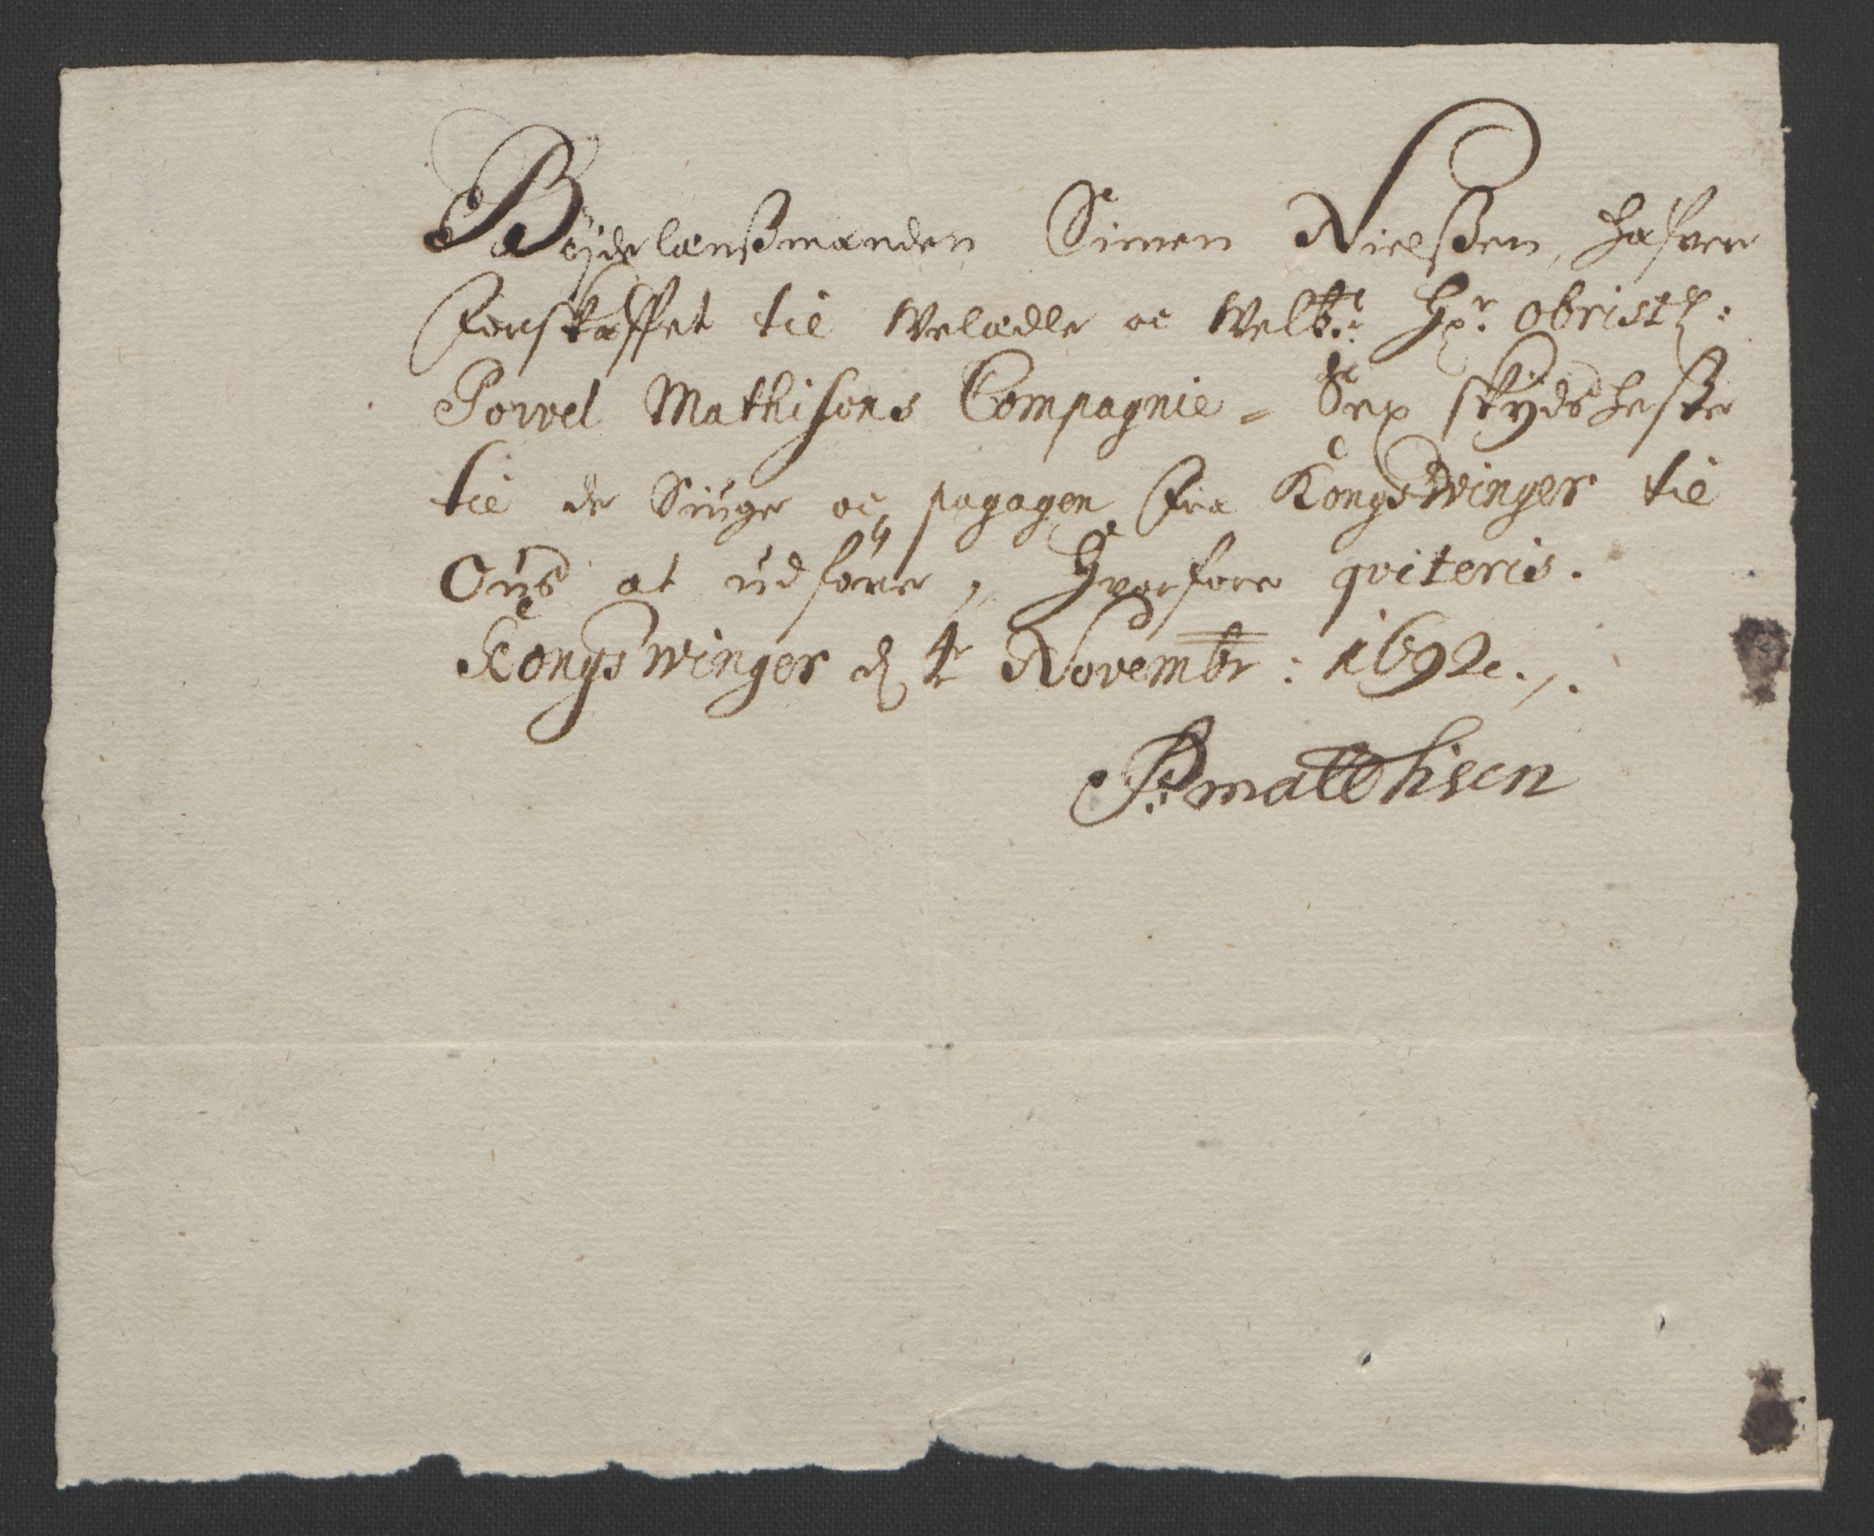 Bøjdelænßmanden Simen Nielßen, hafver
Forskaffet til Welædle oc Welb:r Hr: Obristl:
Povel Mathisons Compagnie - Sex skydsheste
til de Siuge oc pagagen fra Kongswinger til
Ous at udføre, Hvorfore qviteris.
Kongswinger d 4 Novembr: 1692.
P: matthisen